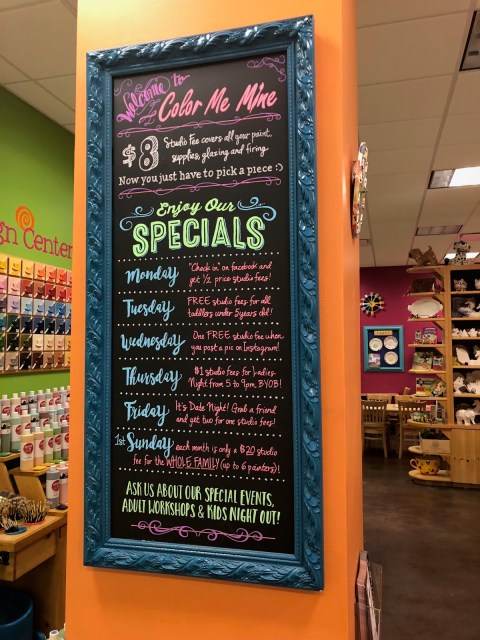 Welcome to
Color Me Mine
$8 Studio Fee covers all your paint,
supplies, glazing and firing
Now you just have to pick a piece :)
Enjoy Our
SPECIALS
Monday "Check in" on facebook and
get 1/2 price studio fees!
Tuesday FREE studio fees for all
toddlers under 5 years old!
Wednesday One FREE studio fee when
you post a pic on Instagram!
Thursday $1 studio fees for Ladies
Night from 5 to 9pm, BYOB!
Friday It's Date Night! Grab a friend
and get two for one studio fees!
1st Sunday each month is only a $20 studio
fee for the WHOLE FAMILY (up to 6 painters)!
ASK US ABOUT OUR SPECIAL EVENTS,
ADULT WORKSHOPS & KIDS NIGHT OUT!
gn Center